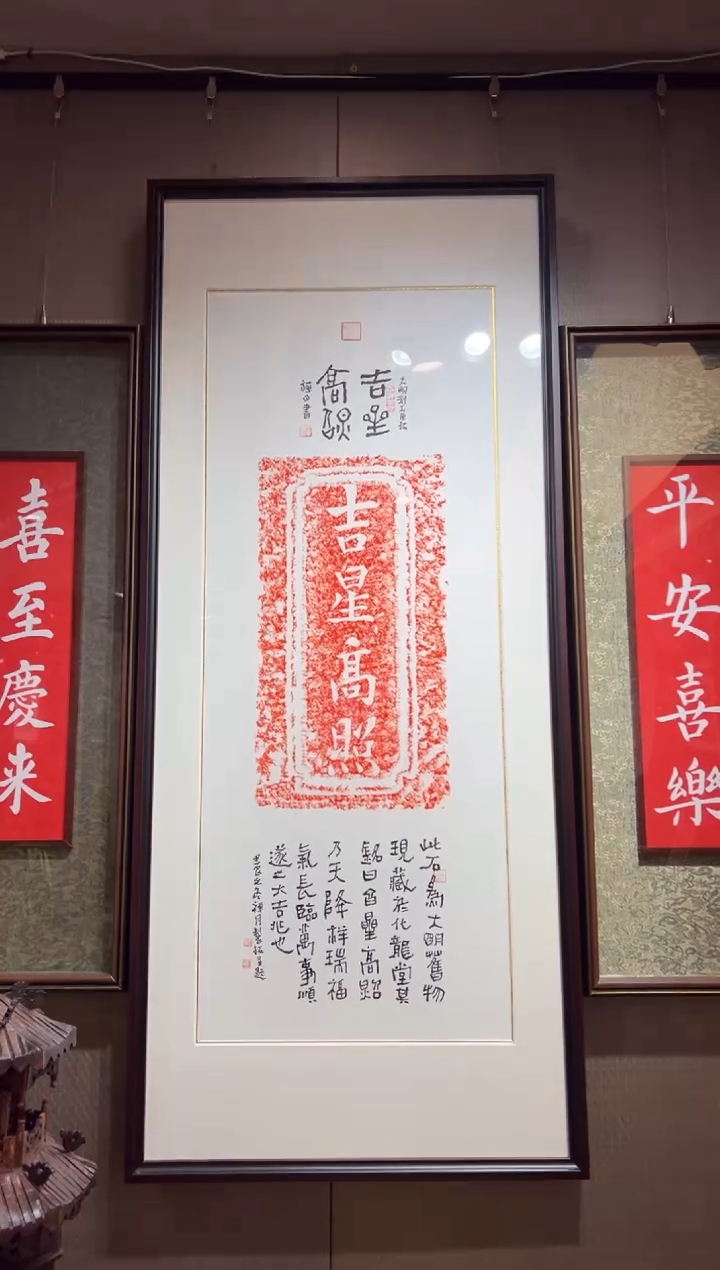 吉星
高照
吉星高照
此石為大明舊物
現藏於化龍堂其
銘曰吉星高照
乃天降祥瑞福
氣長臨萬事順
遂之大吉兆也
喜至慶来
平安喜樂